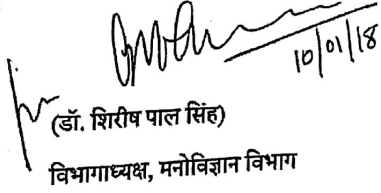 10/01/18
(डॉ. शिरीष पाल सिंह)
विभागाध्यक्ष, मनोविज्ञान विभाग